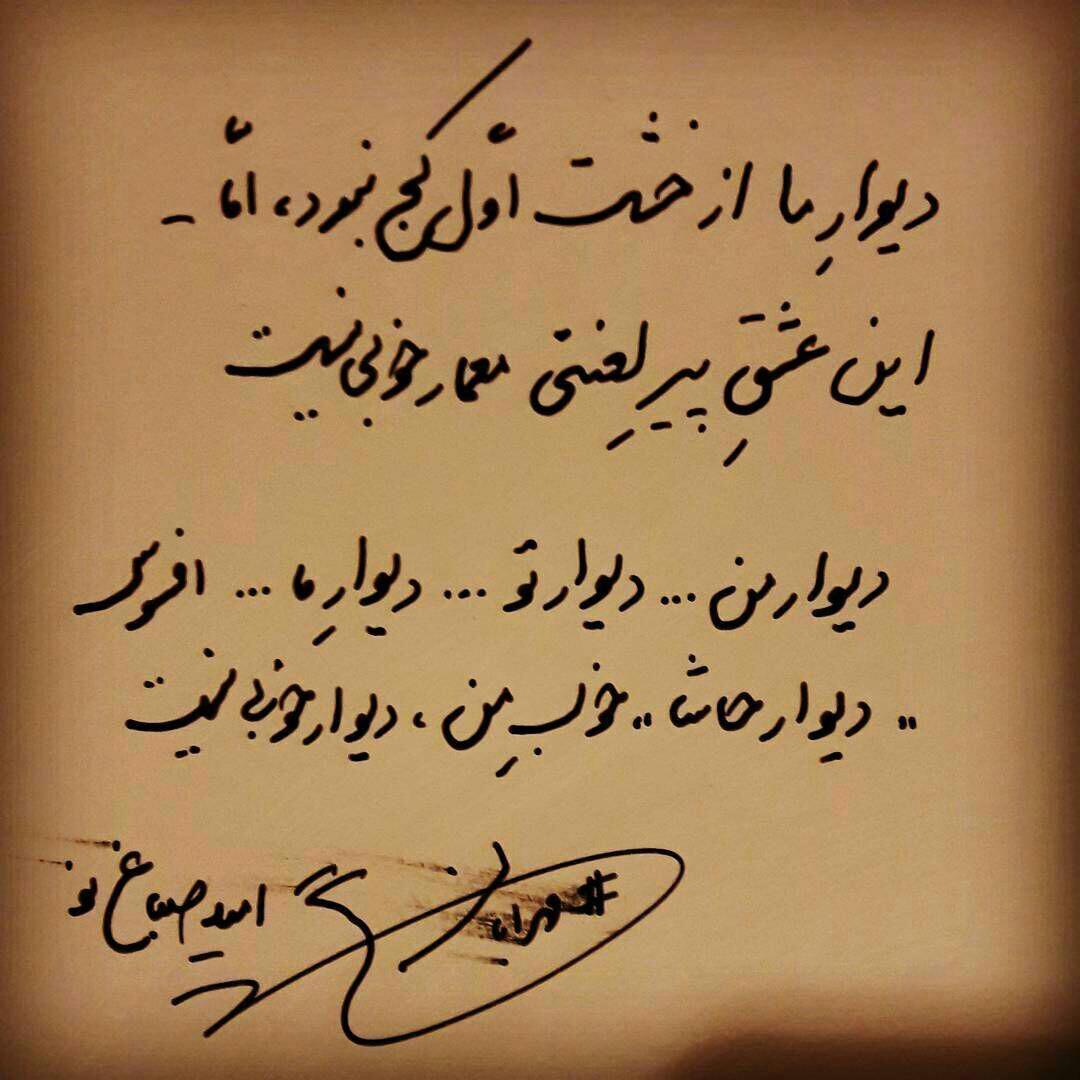 دیوارِ ما از خشت اوّل کج نبود، امّا -
این عشقِ پیرِ لعنتی معمار خوبی نیست
دیوار من ... دیوار تو ... دیوارِ ما ... افسوس
" دیوار حاشا " خوبِ من ، دیوار خوبی نیست
امید صباغ نو